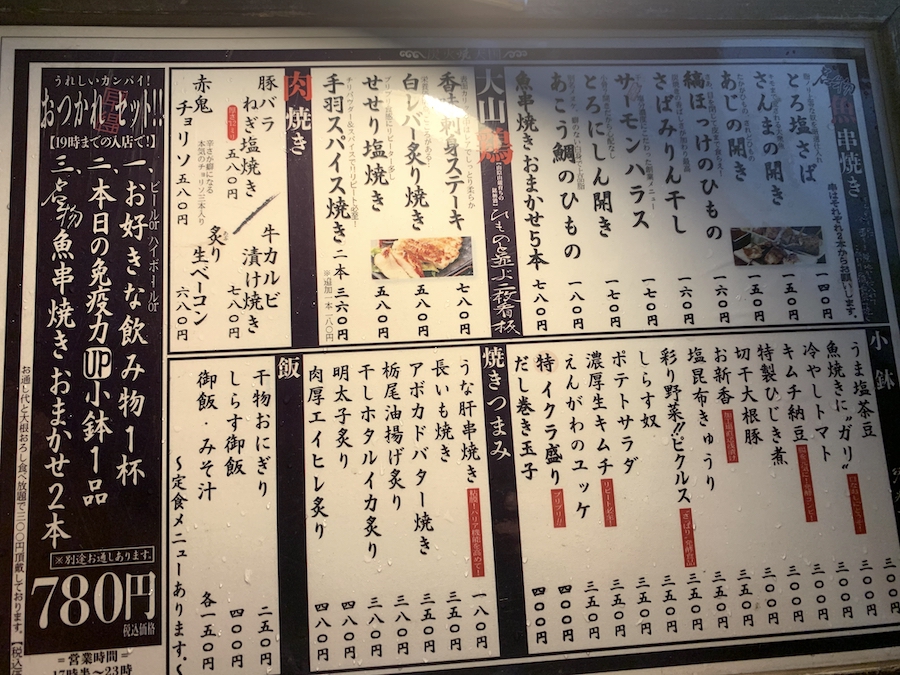 魚串焼き
串はそれぞれ2本からお願いします。
とろ塩さば 一四〇円
さんまの開き 一五〇円
あじの開き 一五〇円
縞ほっけのひもの 一六〇円
さばみりん干し 一六〇円
サーモンハラス 一五〇円
とろにしん開き 一七〇円
あこう鯛のひもの 一八〇円
魚串焼きおまかせ5本 七八〇円
大山鶏
ひものと並ぶ二枚看板
香味刺身ステーキ 七八〇円
白レバー炙り焼き 五八〇円
せせり塩焼き 五八〇円
手羽スパイス焼き 二本 三六〇円
※追加一本一八〇円
肉焼き
豚バラねぎ塩焼き 五八〇円
牛カルビ漬け焼き 七八〇円
赤鬼チョリソ 五八〇円
辛さが癖になる本気のチョリソ三本入り
炙り生ベーコン 六八〇円
小鉢
うま塩茶豆 三〇〇円
魚焼きに"ガリ" 三〇〇円
冷やしトマト 三〇〇円
キムチ納豆 三〇〇円
特製ひじき煮 三〇〇円
切干大根豚 三〇〇円
お新香 三五〇円
塩昆布きゅうり 三五〇円
彩り野菜!!ピクルス 三五〇円
さっぱり発酵食品
しらす奴 三五〇円
ポテトサラダ 三五〇円
濃厚生キムチ 三五〇円
リピート必至!
えんがわのユッケ 三五〇円
特イクラ盛り 四〇〇円
プリプリ!!
だし巻き玉子 四〇〇円
焼きつまみ
うな肝串焼き 一八〇円
長いも焼き 三五〇円
アボカドバター焼き 三五〇円
栃尾油揚げ炙り 三八〇円
干しホタルイカ炙り 三八〇円
明太子炙り 四八〇円
肉厚エイヒレ炙り 四八〇円
飯
干物おにぎり 二五〇円
しらす御飯 四〇〇円
御飯・みそ汁 各一五〇円
〜定食メニューあります。〜
うれしいカンパイ!
おつかれセット!!
【19時までの入店で!】
一、お好きな飲み物1杯
ビールorハイボールor
二、本日の免疫力UP小鉢1品
三、名物魚串焼きおまかせ2本
※別途お通しあります。
780円
税込価格
お通し代と大根おろし食べ放題で三〇〇円頂戴しております。
=営業時間=
17時半〜23時